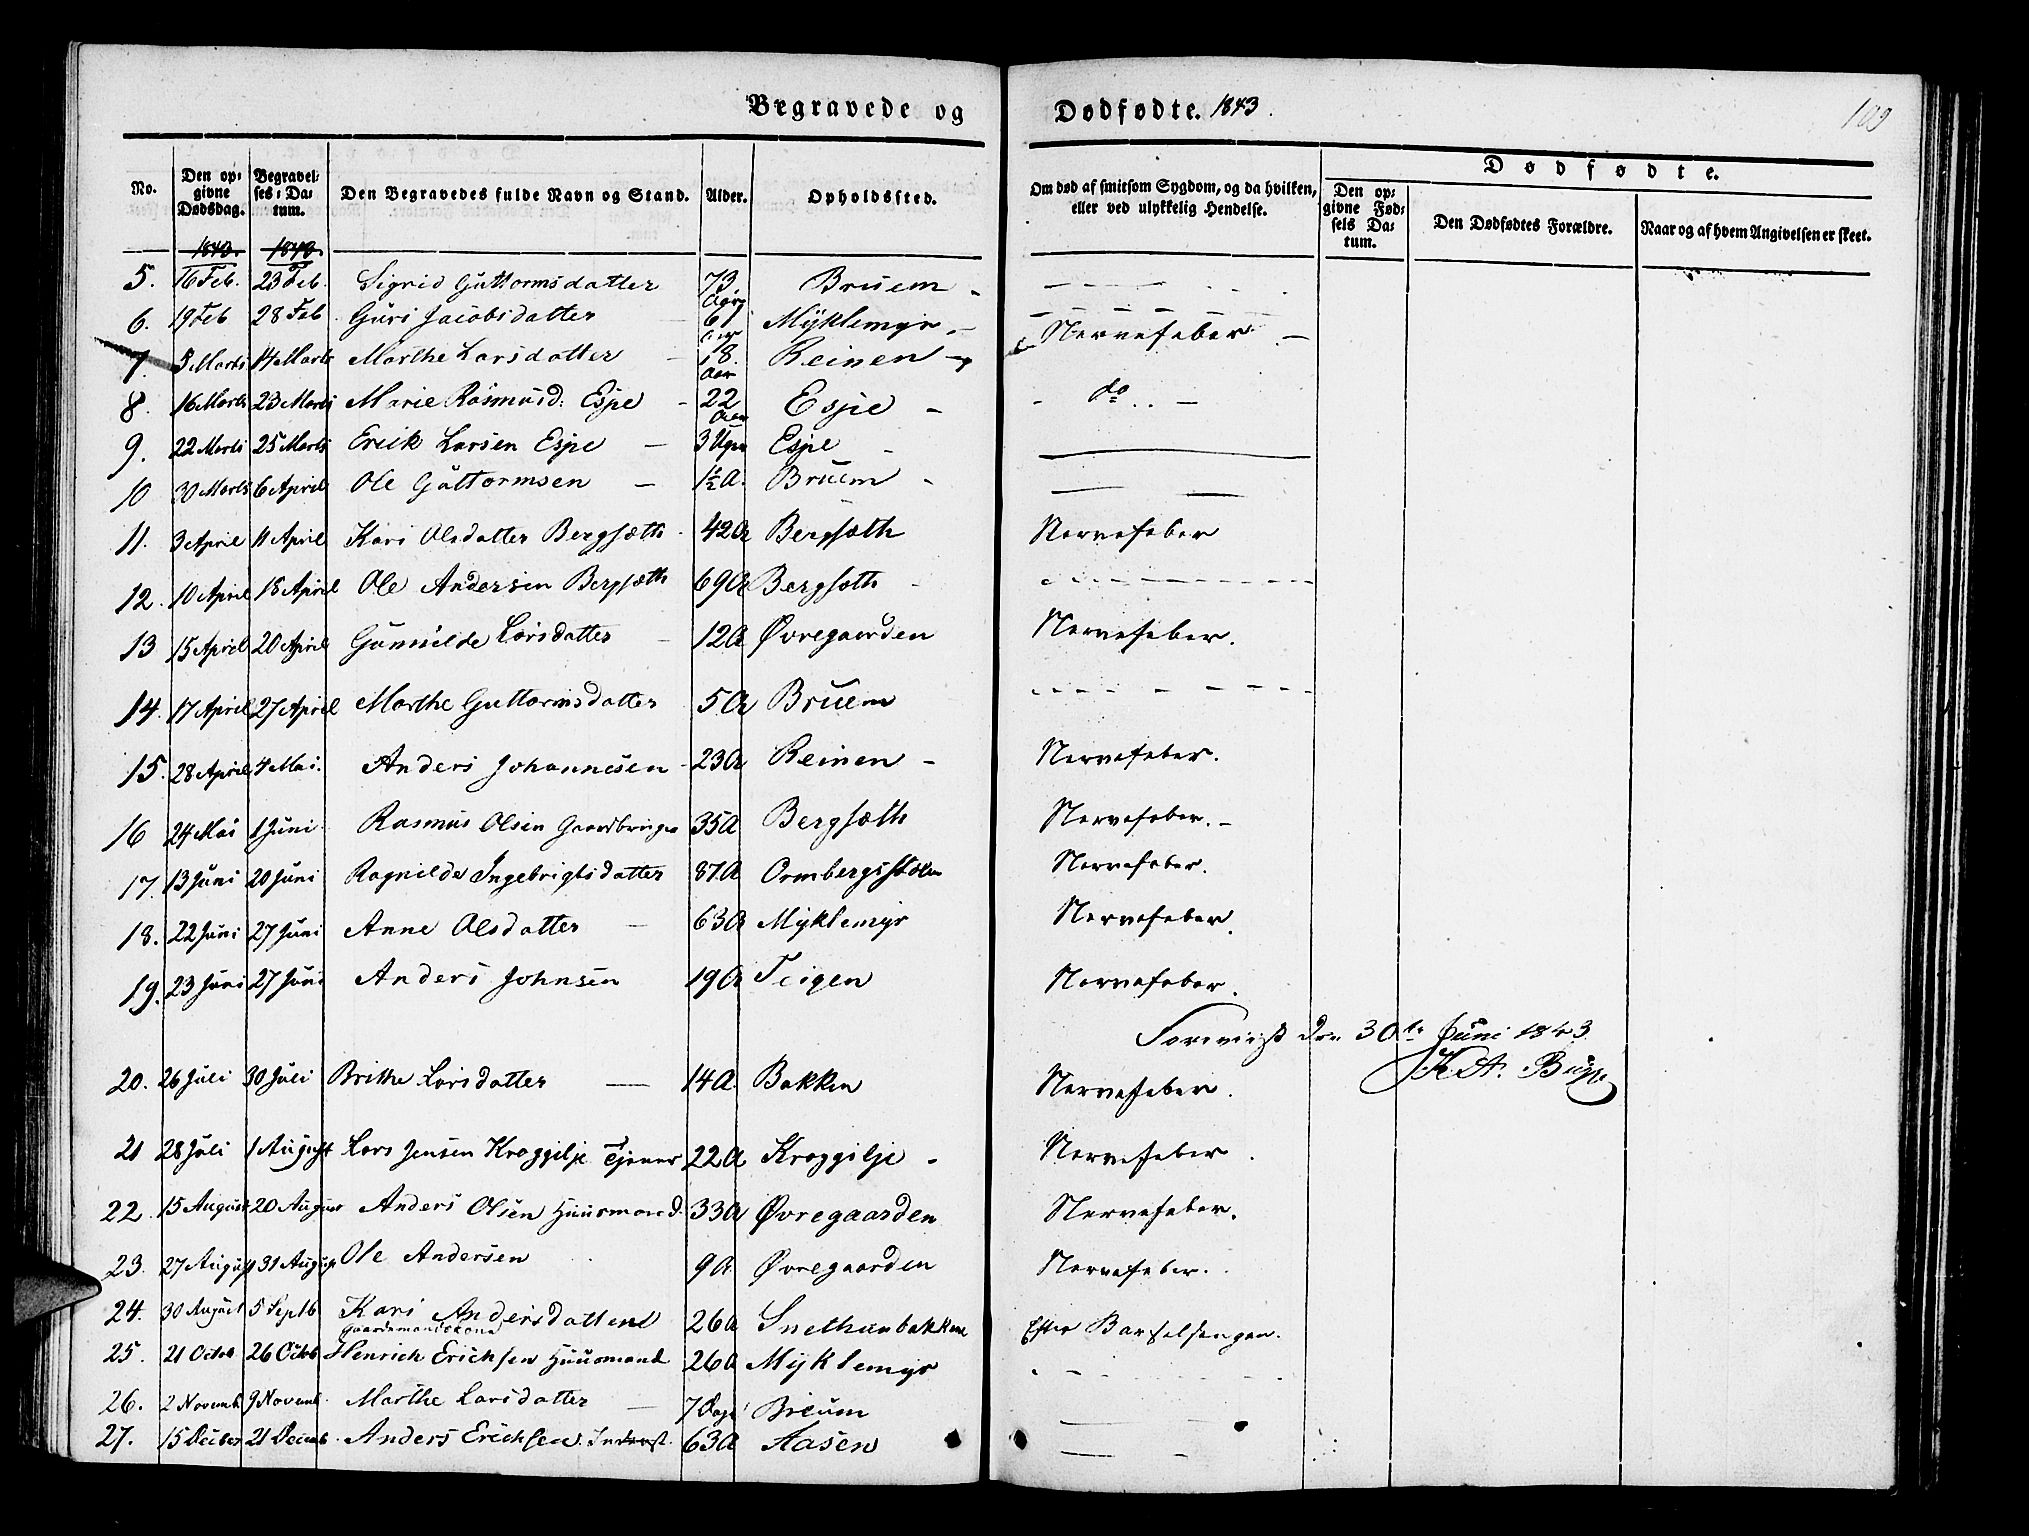 Begravede og Dødfødte. 1843.
109
No. Den opgivne Dødsdag. Begravelses-Datum. Den Begravedes fulde Navn og Stand. Alder. Opholdssted. Om død af smitsom Sygdom, og da hvilken, eller ved ulykkelig Hendelse. Dødfødte.
Den opgivne Fødsels Datum. Den Dødfødtes Forældre. Naar og af hvem Angivelsen er skeet.
5. 16 Feb. 23 Feb. Sigrid Guttormsdatter 73 Bruem
6. 19 Feb 28 Feb Guri Jacobsdatter 6 Myklemyr Nervefeber
7. 5 Marts 14 Marts Marthe Larsdatter 18 Aar Reinen
8. 16 Marts 23 Marts Marie Rasmusd: Espe 22 Aar Espe do
9. 22 Marts 25 Marts Erick Larsen Espe 3 Uger Espe
10 30 Marts 6 April Ole Guttormsen 1½ A. Bruem
11. 3 April 11 April Kari Olsdatter Bergsæth 42 A Bergsæth Nervefeber
12. 10 April 18 April Ole Andersen Bergsæth 69 A Bergsæth
13 15 April 20 April Gunnilde Larsdatter 12 A Øvregaarden Nervefeber.
14. 17 April 27 April Marthe Guttormsdatter 5 A Bruem
15. 28 April 4 Mai. Anders Johannesen 23 A Reinen Nervefeber.
16 24 Mai 1 Juni Rasmus Olsen Gaardbruger 35 A Bergsæth Nervefeber.
17. 13 Juni 20 Juni Ragnilde Ingebrigtsdatter 87. A Ormbergsstølen Nervefeber.
18. 22 Juni 27 Juni Anne Olsdatter 63 A Myklemyr Nervefeber.
19. 23 Juni 27 Juni Anders Johnsen 19 A Teigen Nervefeber.
Foreviist den 30te Juni 1843
20. 26 Juli 30 Juli Brithe Larsdatter 14 A. Bakken Nervefeber.
21 28 Juli 1 August Lars Jensen Kroggilje Tjener 22 A Kroggilje Nervefeber.
22. 15 August 20 August Anders Olsen Huusmand. 33 A Øvregaarden Nervefeber.
23. 27 August 31 August Ole Andersen 9 A. Øvregaarden Nervefeber.
24. 30 August 5 Septb Kari Andersdatter 26 A Snethunbakken Efter Barselsengen.
Gaardmandskone
25. 21 Octob 26 Octob Henrich Erichsen Huusmand 26 A Myklemyr
26. 2 Novemb 9 Novemb. Marthe Larsdatter 7 Dage Breum
27. 15 December 21 Decemb. Anders Erichsen. Inderst. 63 A Aasen